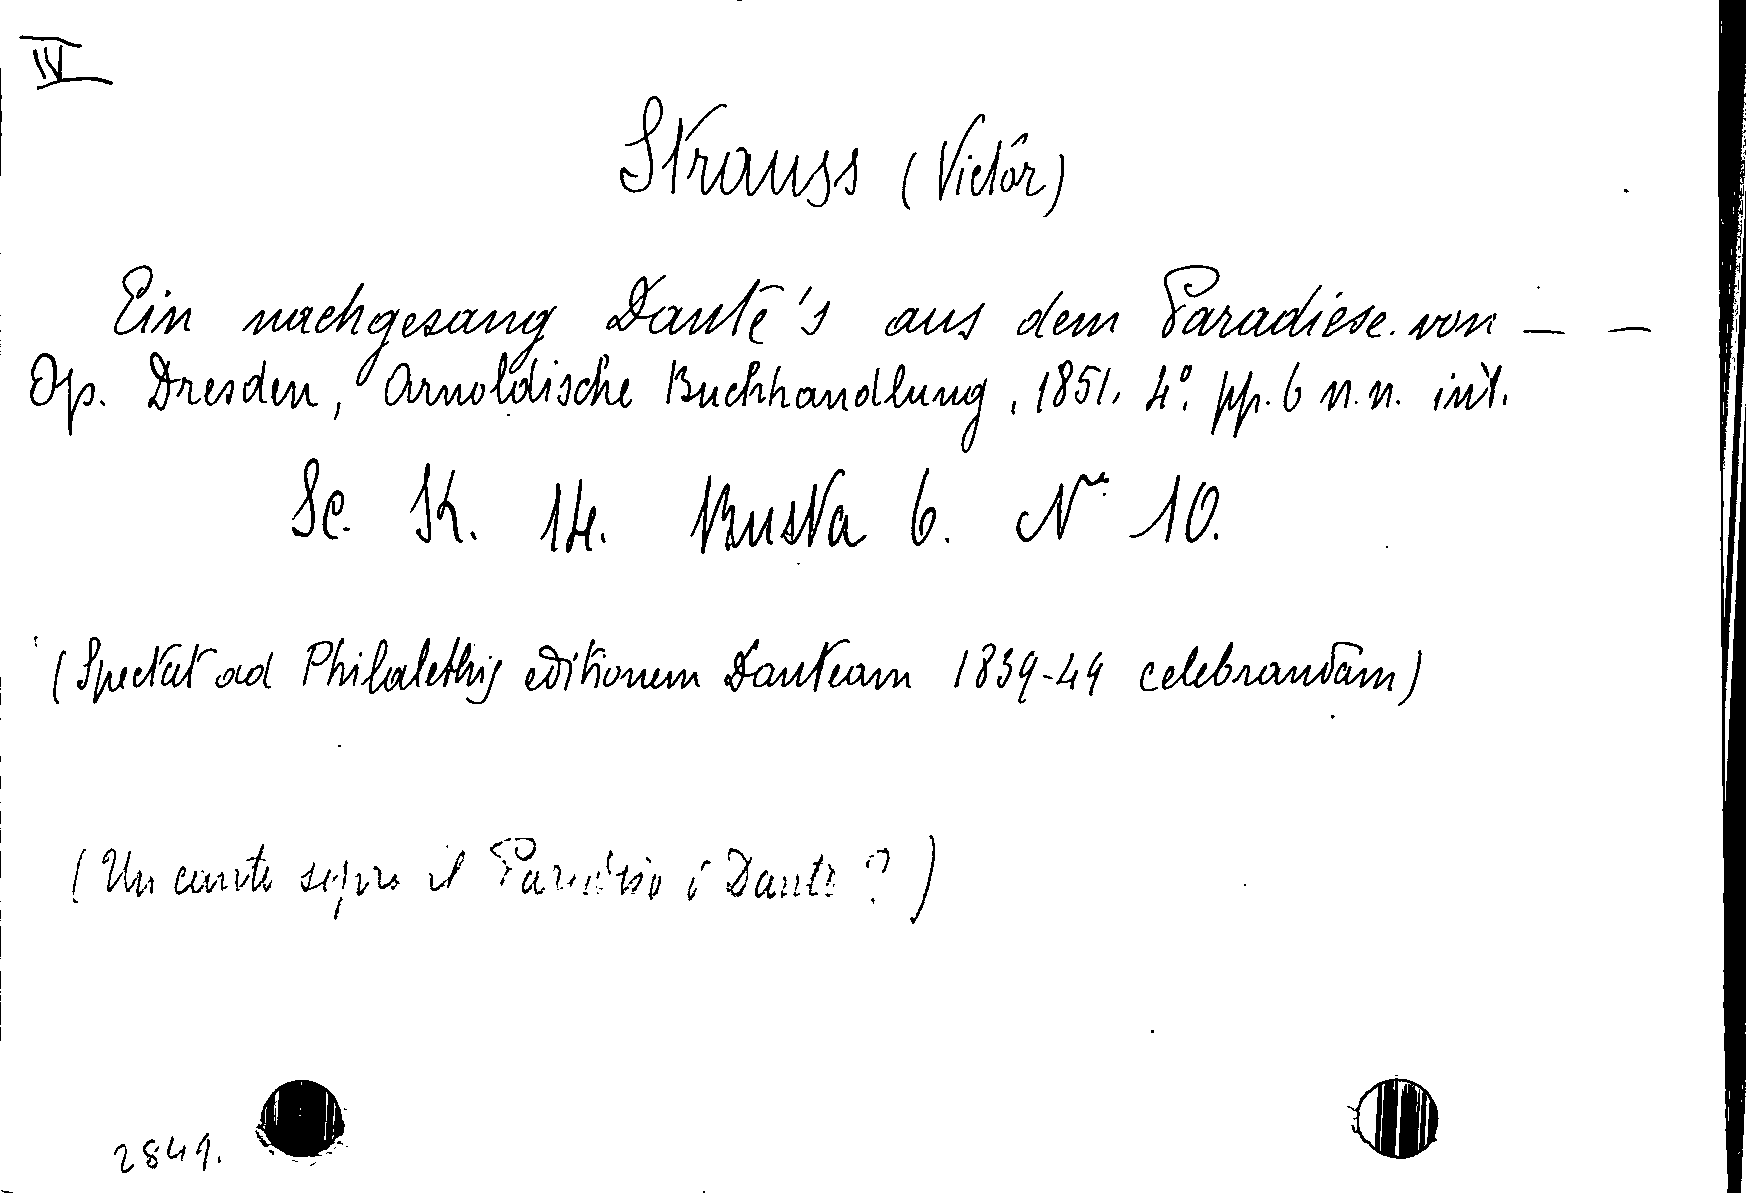 IV
Strauss (Victor)
Ein nachgesang Dante's aus dem Paradiese. von — —
Op. Dresden, Arnoldische Buchhandlung, 1851. 4°. pp. 6 n.n. int.
Sc. K. 14. Busta 6. N.º 10.
(Spectat ad Philalethis editionem Danteam 1839-49 celebrandam)
(Un canto sopra il Paradiso i Dante?)
2849.